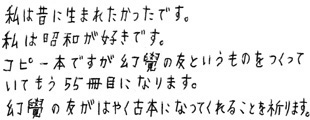 私は昔に生まれたかったです。
私は昭和が好きです。
コピー本ですが幻覺の友というものをつくって
いてもう55冊目になります。
幻覺の友がはやく古本になってくれることを祈ります。